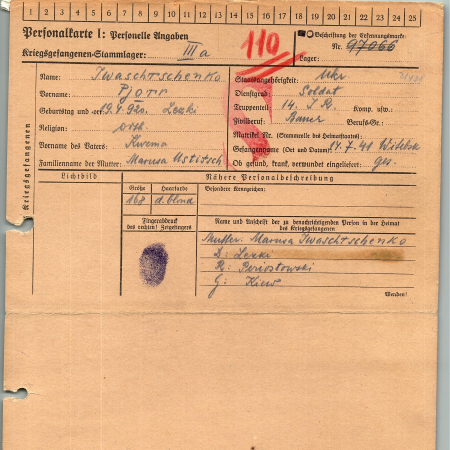 1 2 3 4 5 6 7 8 9 10 11 12 13 14 15 16 17 18 19 20 21 22 23 24 25
Personalkarte I: Personelle Angaben
Kriegsgefangenen-Stammlager: III a
110
Beschriftung der Erkennungsmarke
Nr. 97066
Lager:
Kriegsgefangenen
Name: Iwaschtschenko
Vorname: Pjotr
Geburtstag und -ort: 19. Leski
Religion: orth.
Vorname des Vaters:
Familienname der Mutter: Marusa Ustitsch
Staatsangehörigkeit: Ukr
Dienstgrad: Soldat
Truppenteil: 14. J.R. Komp. usw.:
Zivilberuf: Bauer Berufs-Gr.:
Matrikel Nr. (Stammrolle des Heimatstaates):
Gefangennahme (Ort und Datum): 14.7.41 Witebsk
Ob gesund, krank, verwundet eingeliefert: ges.
Lichtbild
Nähere Personalbeschreibung
Größe Haarfarbe Besondere Kennzeichen:
168 d.blond
Fingerabdruck
des rechten! Zeigefingers
Name und Anschrift der zu benachrichtigenden Person in der Heimat
des Kriegsgefangenen
Mutter. Marusa Iwaschtschenko
D: Leski
R:
G: Kiew
Wenden!